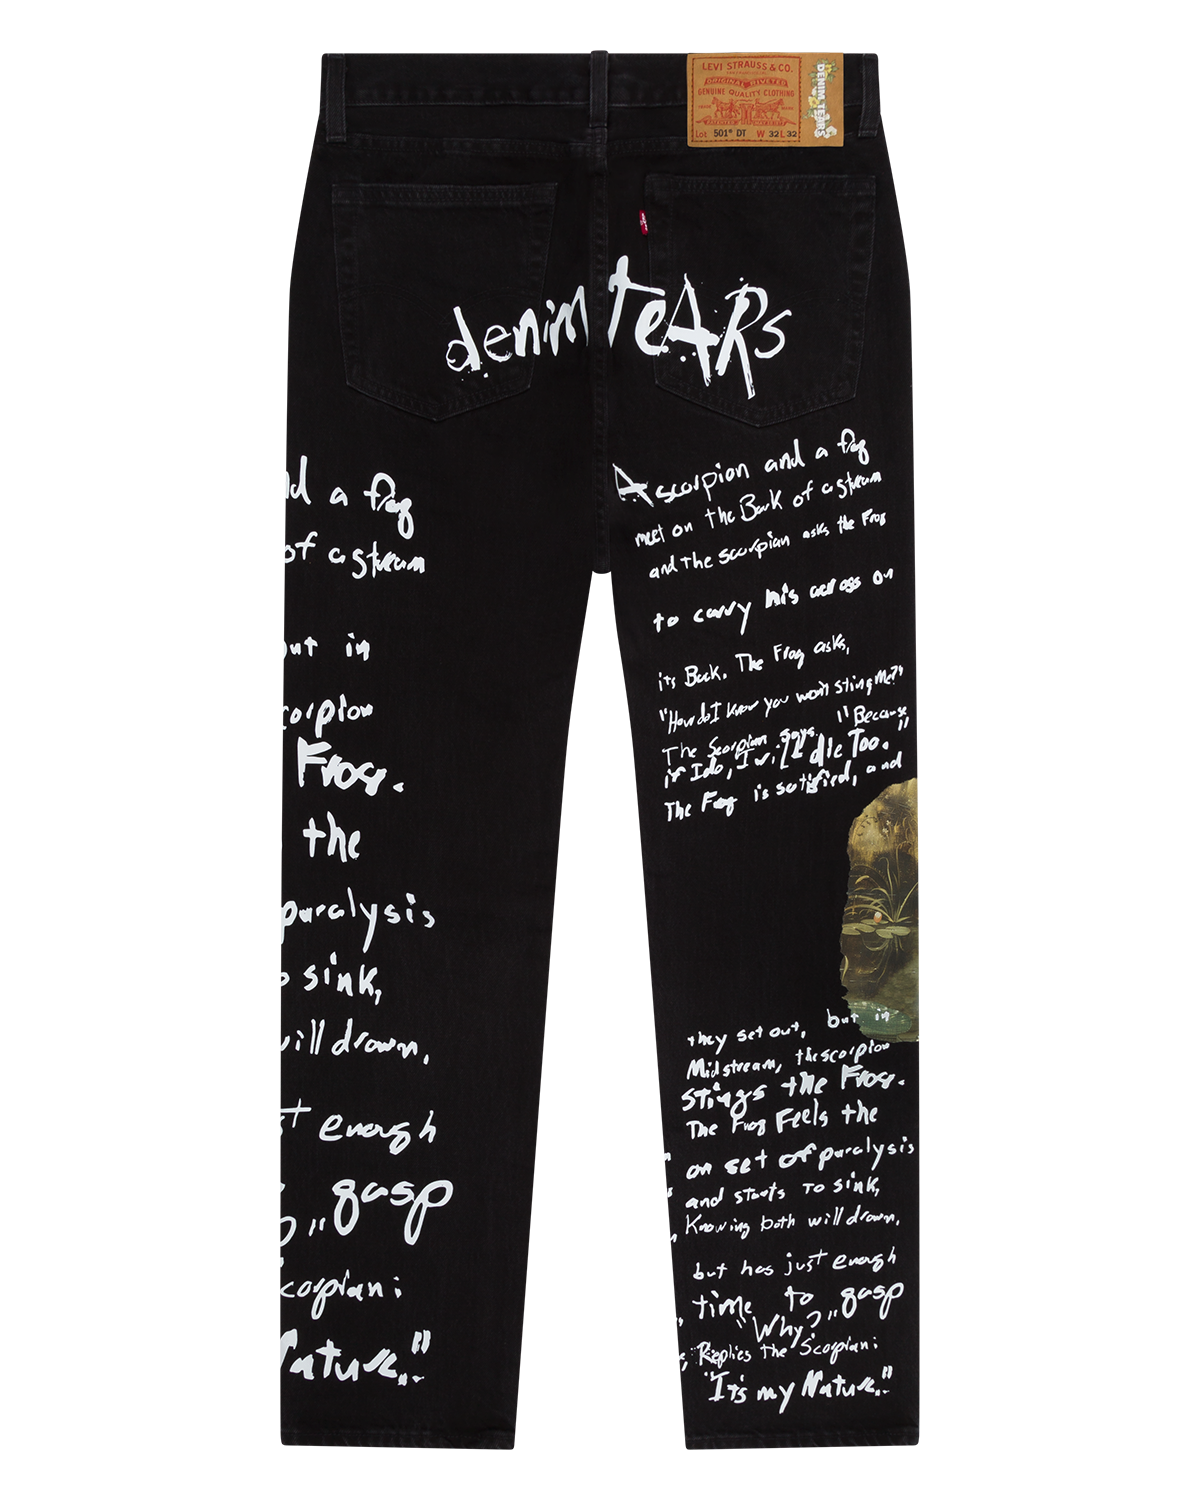 LEVI STRAUSS & CO.
ORIGINAL RIVETED
GENUINE QUALITY CLOTHING
Lot 501® DT W 32 L 32
DENIM TEARS
denim teARs
nd a frog
of a stream
out in
corpion
Frog.
the
paralysis
o sink,
will drown.
st enough
gasp
?"
corpian:
Nature."
A scorpion and a frog
meet on the Bank of a stream
and the scorpian asks the Frog
to carry his across on
its Back. The Frog asks,
"How do I know you won't sting Me?"
The Scorpian says, "Because
if I do, I will die Too."
The Frog is satisfied, and
they set out, but in
Midstream, the scorpion
stings the Frog.
The Frog Feels the
on set of paralysis
and starts to sink,
Knowing both will drown,
but has just enough
time to gasp
"Why?"
Replies the Scorpian:
"It's my Nature."